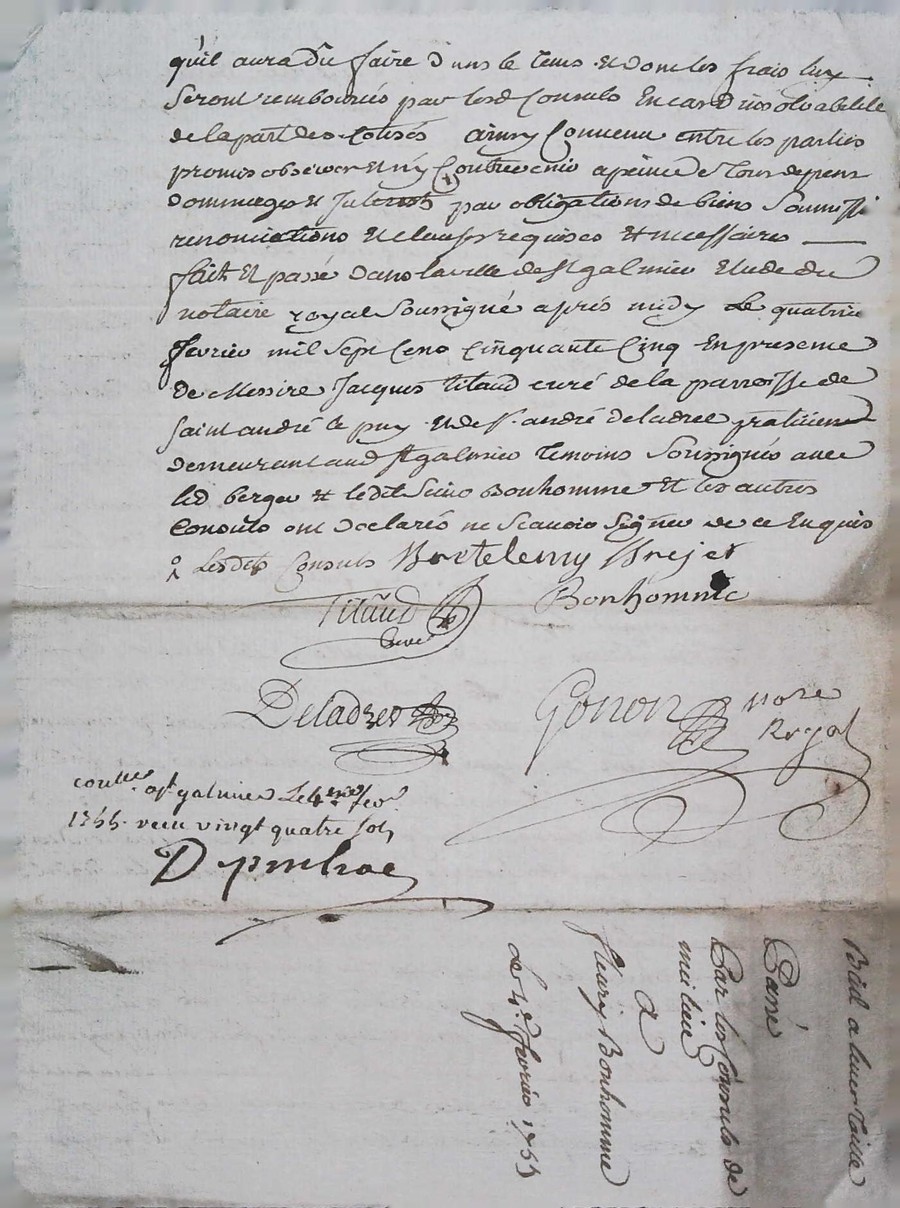 qu'il aura du faire dans le tems et dont les frais luy
seront remboursés par lesd Consuls En cas d'insolvabilité
de la part des Cotisés ainsy Convenu entre les parties
promis observer et n'y Contrevenir a peine de tous depens
dommages et Interests par obligations de biens Soumissi
renonciations et clauses requises et necessaires
fait et passé dans la ville de St galmier Etude du
notaire royal Soussigné après midy Le quatrie
fevrier mil sept Cens Cinquante Cinq En presence
de Messire Jacques titaud curé de la parroisse de
Saint andré le puy et de Sr. andré deladret
demeurant aud St galmier temoins Soussignés avec
led berger et ledit Bonhomme et les autres
Consuls ont declarés ne Scavoir Signer de ce Enquis
Lesdts Consuls Bartelemy Brejer
Titaud Bonhomme
Curé
Deladret Gonon nore
Royal
a St galmier Le 4me fevr
1755. receu vingt quatre sols
Bail a lever Taille
Passé
Par les Consuls de
a
fleury Bonhomme
du 4e. fevrier 1755